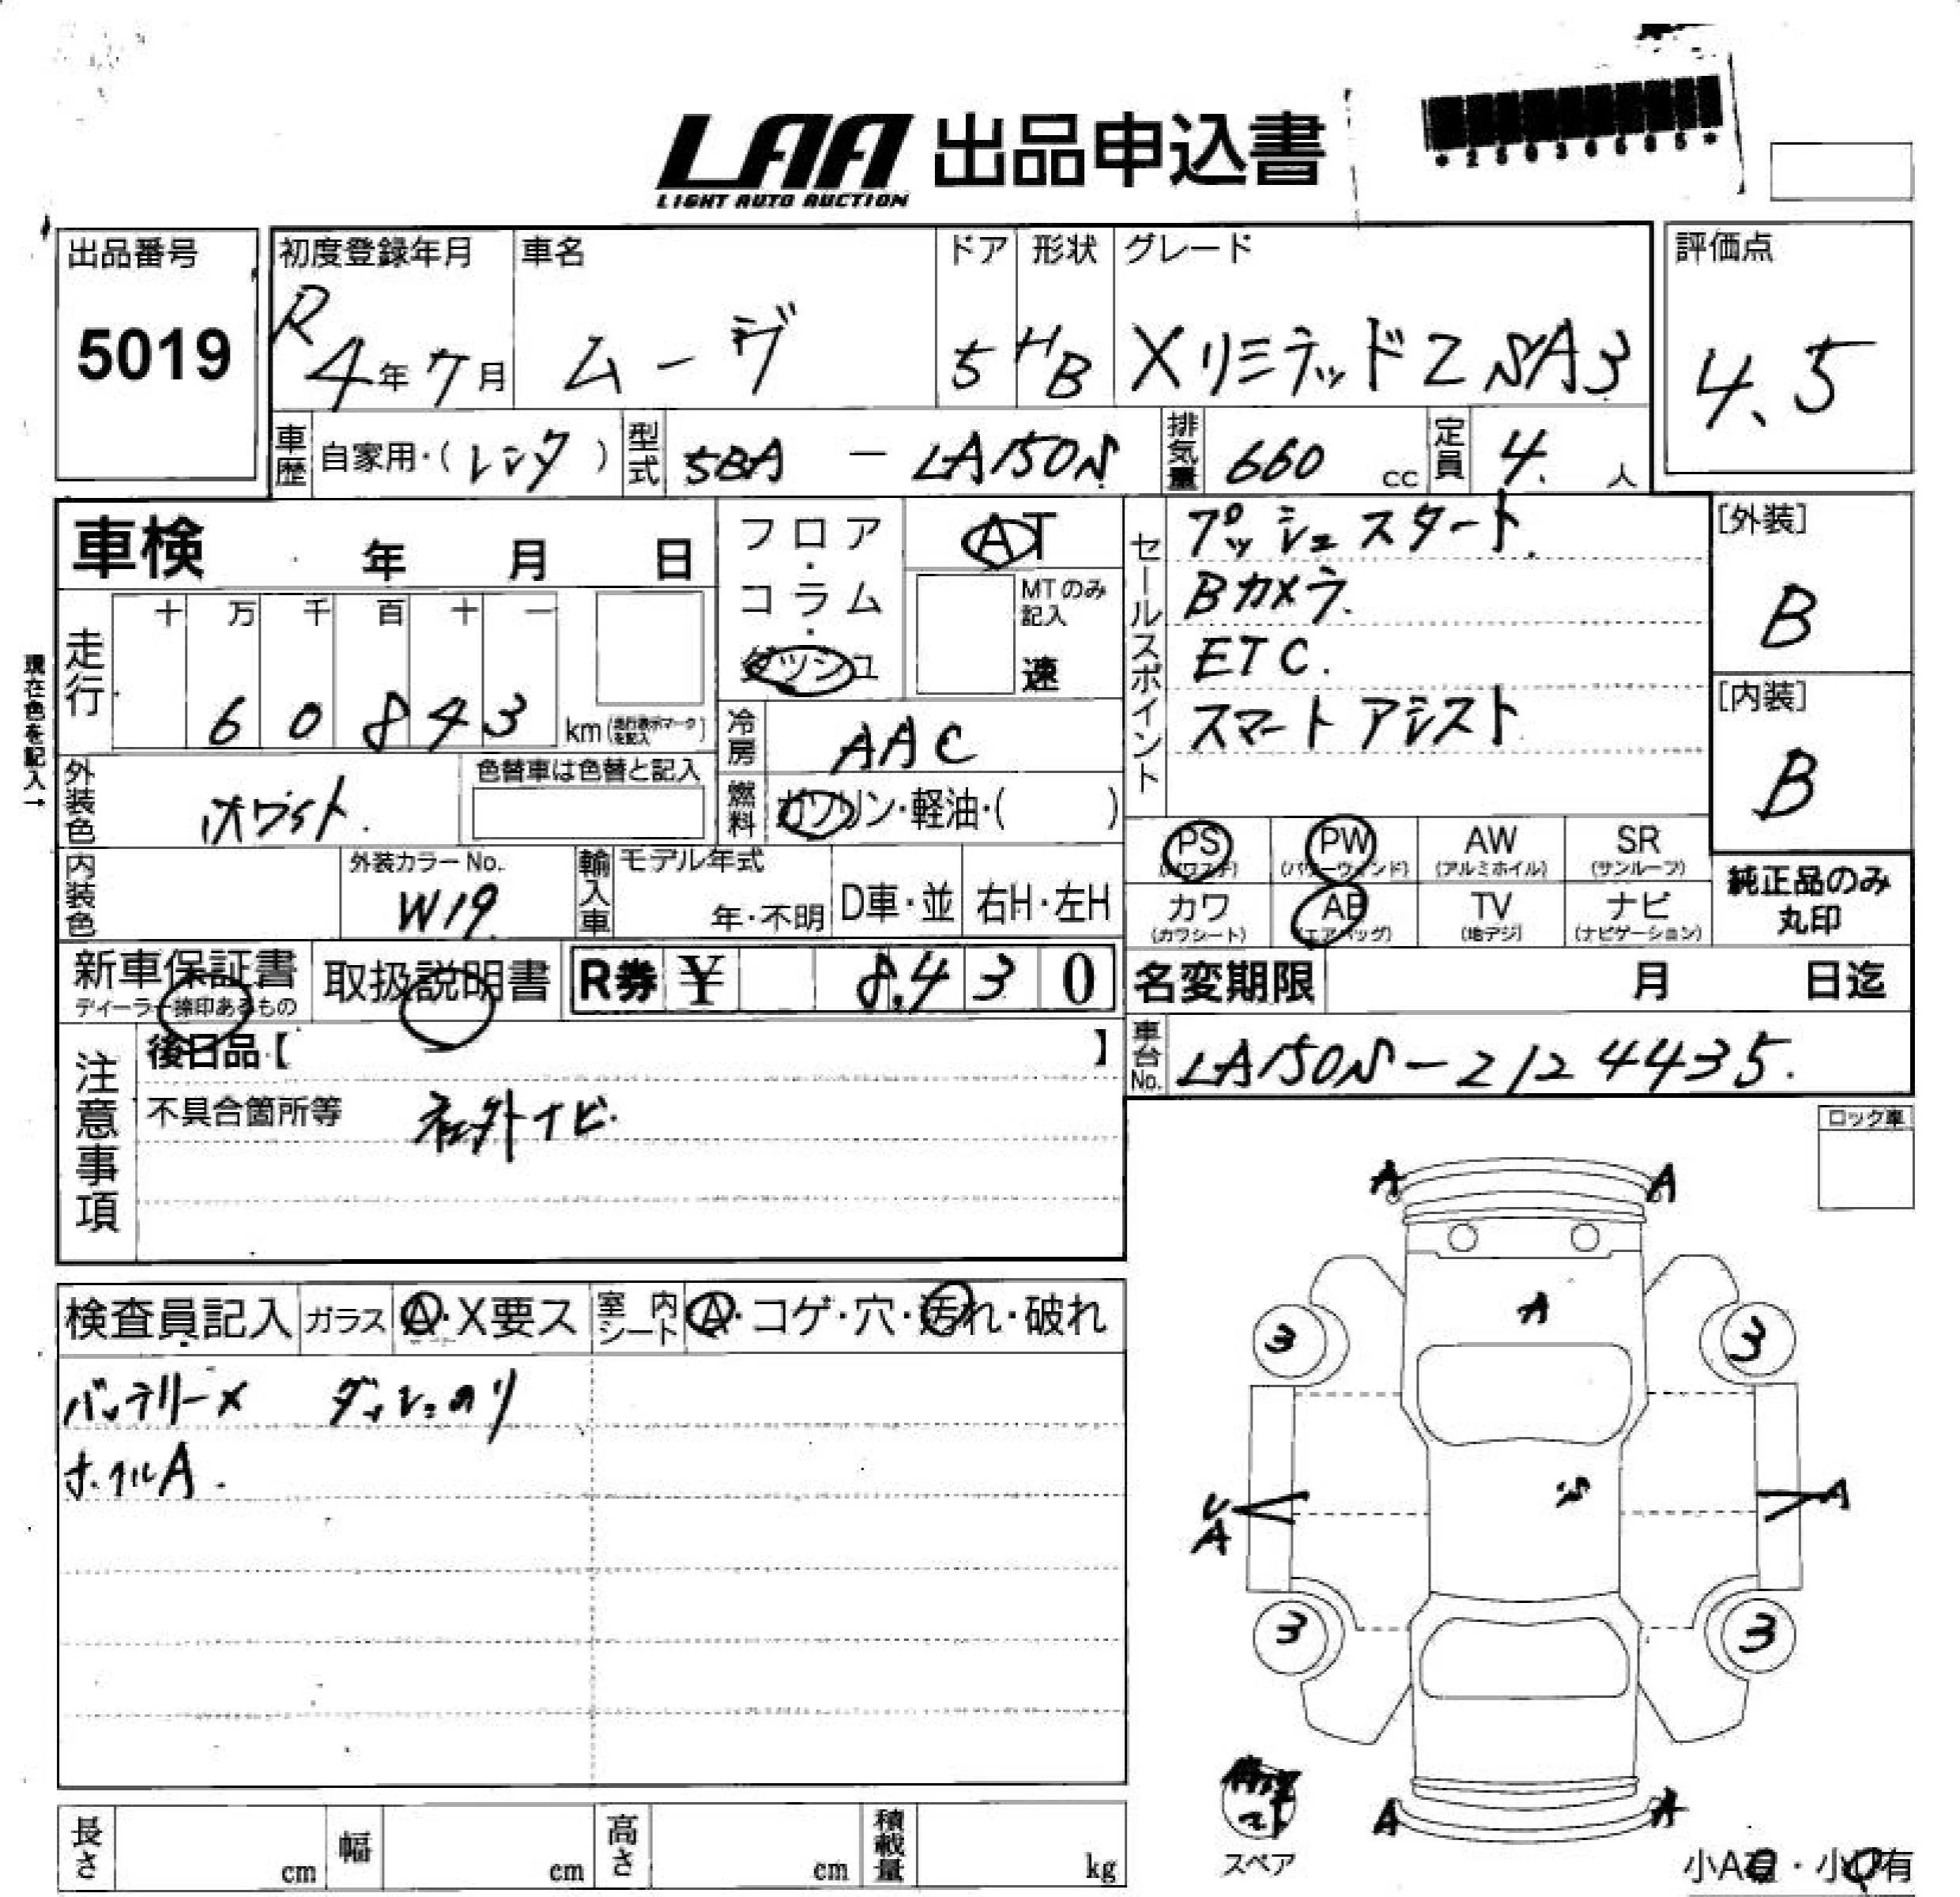 LAA 出品申込書
LIGHT AUTO AUCTION
*25036505*
出品番号
5019
初度登録年月
R4年7月
車名
ムーヴ
ドア
5
形状
HB
グレード
XリミテッドⅡSA3
評価点
4.5
車歴
自家用・(レンタ)
型式
5BA - LA150S
排気量
660 cc
定員
4. 人
車検 年 月 日
フロア・コラム・ダッシュ
AT
MTのみ記入
速
セールスポイント
プッシュスタート.
Bカメラ.
ETC.
スマートアシスト
[外装]
B
[内装]
B
現在色を記入→
走行
十 万 千 百 十 一
6 0 8 4 3 km(走行表示マークを記入)
冷房
AAC
外装色
ホワイト.
色替車は色替と記入
燃料
ガソリン・軽油・( )
PS
(パワステ)
PW
(パワーウィンド)
AW
(アルミホイル)
SR
(サンルーフ)
カワ
(カワシート)
AB
(エアバッグ)
TV
(地デジ)
ナビ
(ナビゲーション)
純正品のみ
丸印
内装色
外装カラーNo.
W19.
輸入車
モデル年式
年・不明
D車・並
右H・左H
新車保証書
ディーラー捺印あるもの
取扱説明書
R券 ¥ 8,430
名変期限 月 日迄
車台No.
LA150S-2124435.
注意事項
後日品【 】
不具合箇所等 社外ナビ.
ロック車
検査員記入
ガラス
A・X要ス
室内シート
A・コゲ・穴・汚れ・破れ
バッテリー× ダッシュのり
ホイルA.
A A
A
3 3
UA A
3 3
A A
スペア
長さ cm
幅 cm
高さ cm
積載量 kg